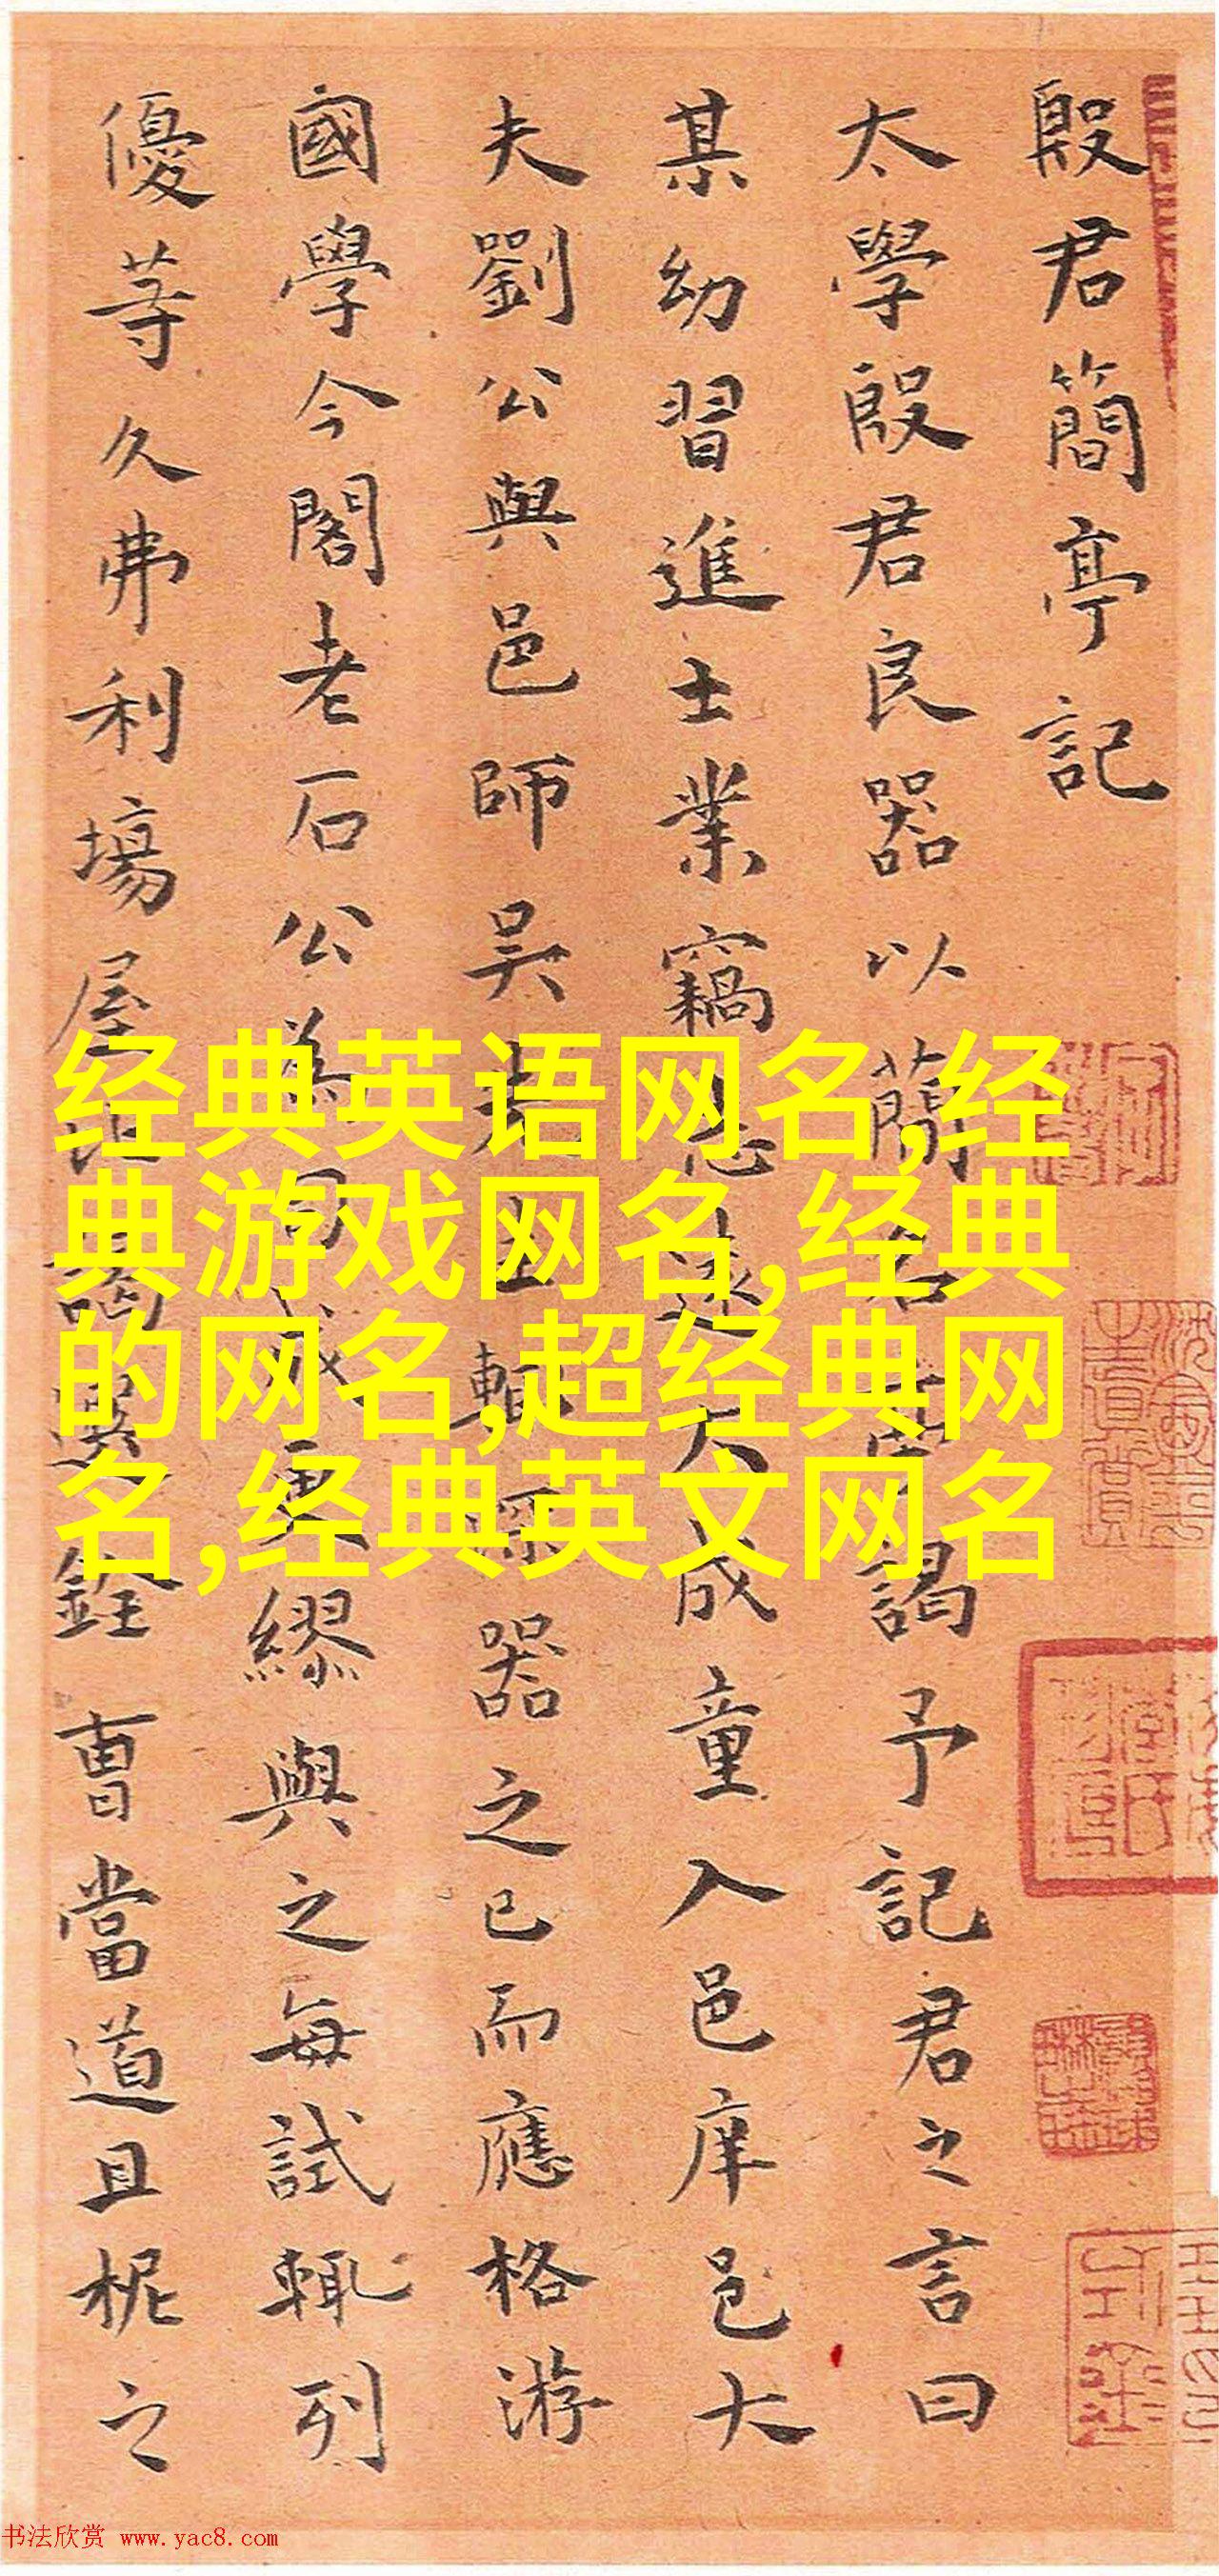 殷君簡亭記
太學殷君良器以簡名亭謁予記君之言曰
某幼習進士業竊志遠大成童入邑庠邑大
夫劉公與邑師吳先生輒深器之已而應格游
國學今閣老石公為司成更繆與之每試輒列
優等久弗利場屋比謁選銓曹當道且柅之
经典英语网名,经
典游戏网名,经典
的网名,超经典网
名,经典英文网名
书法欣赏 www.yac8.com